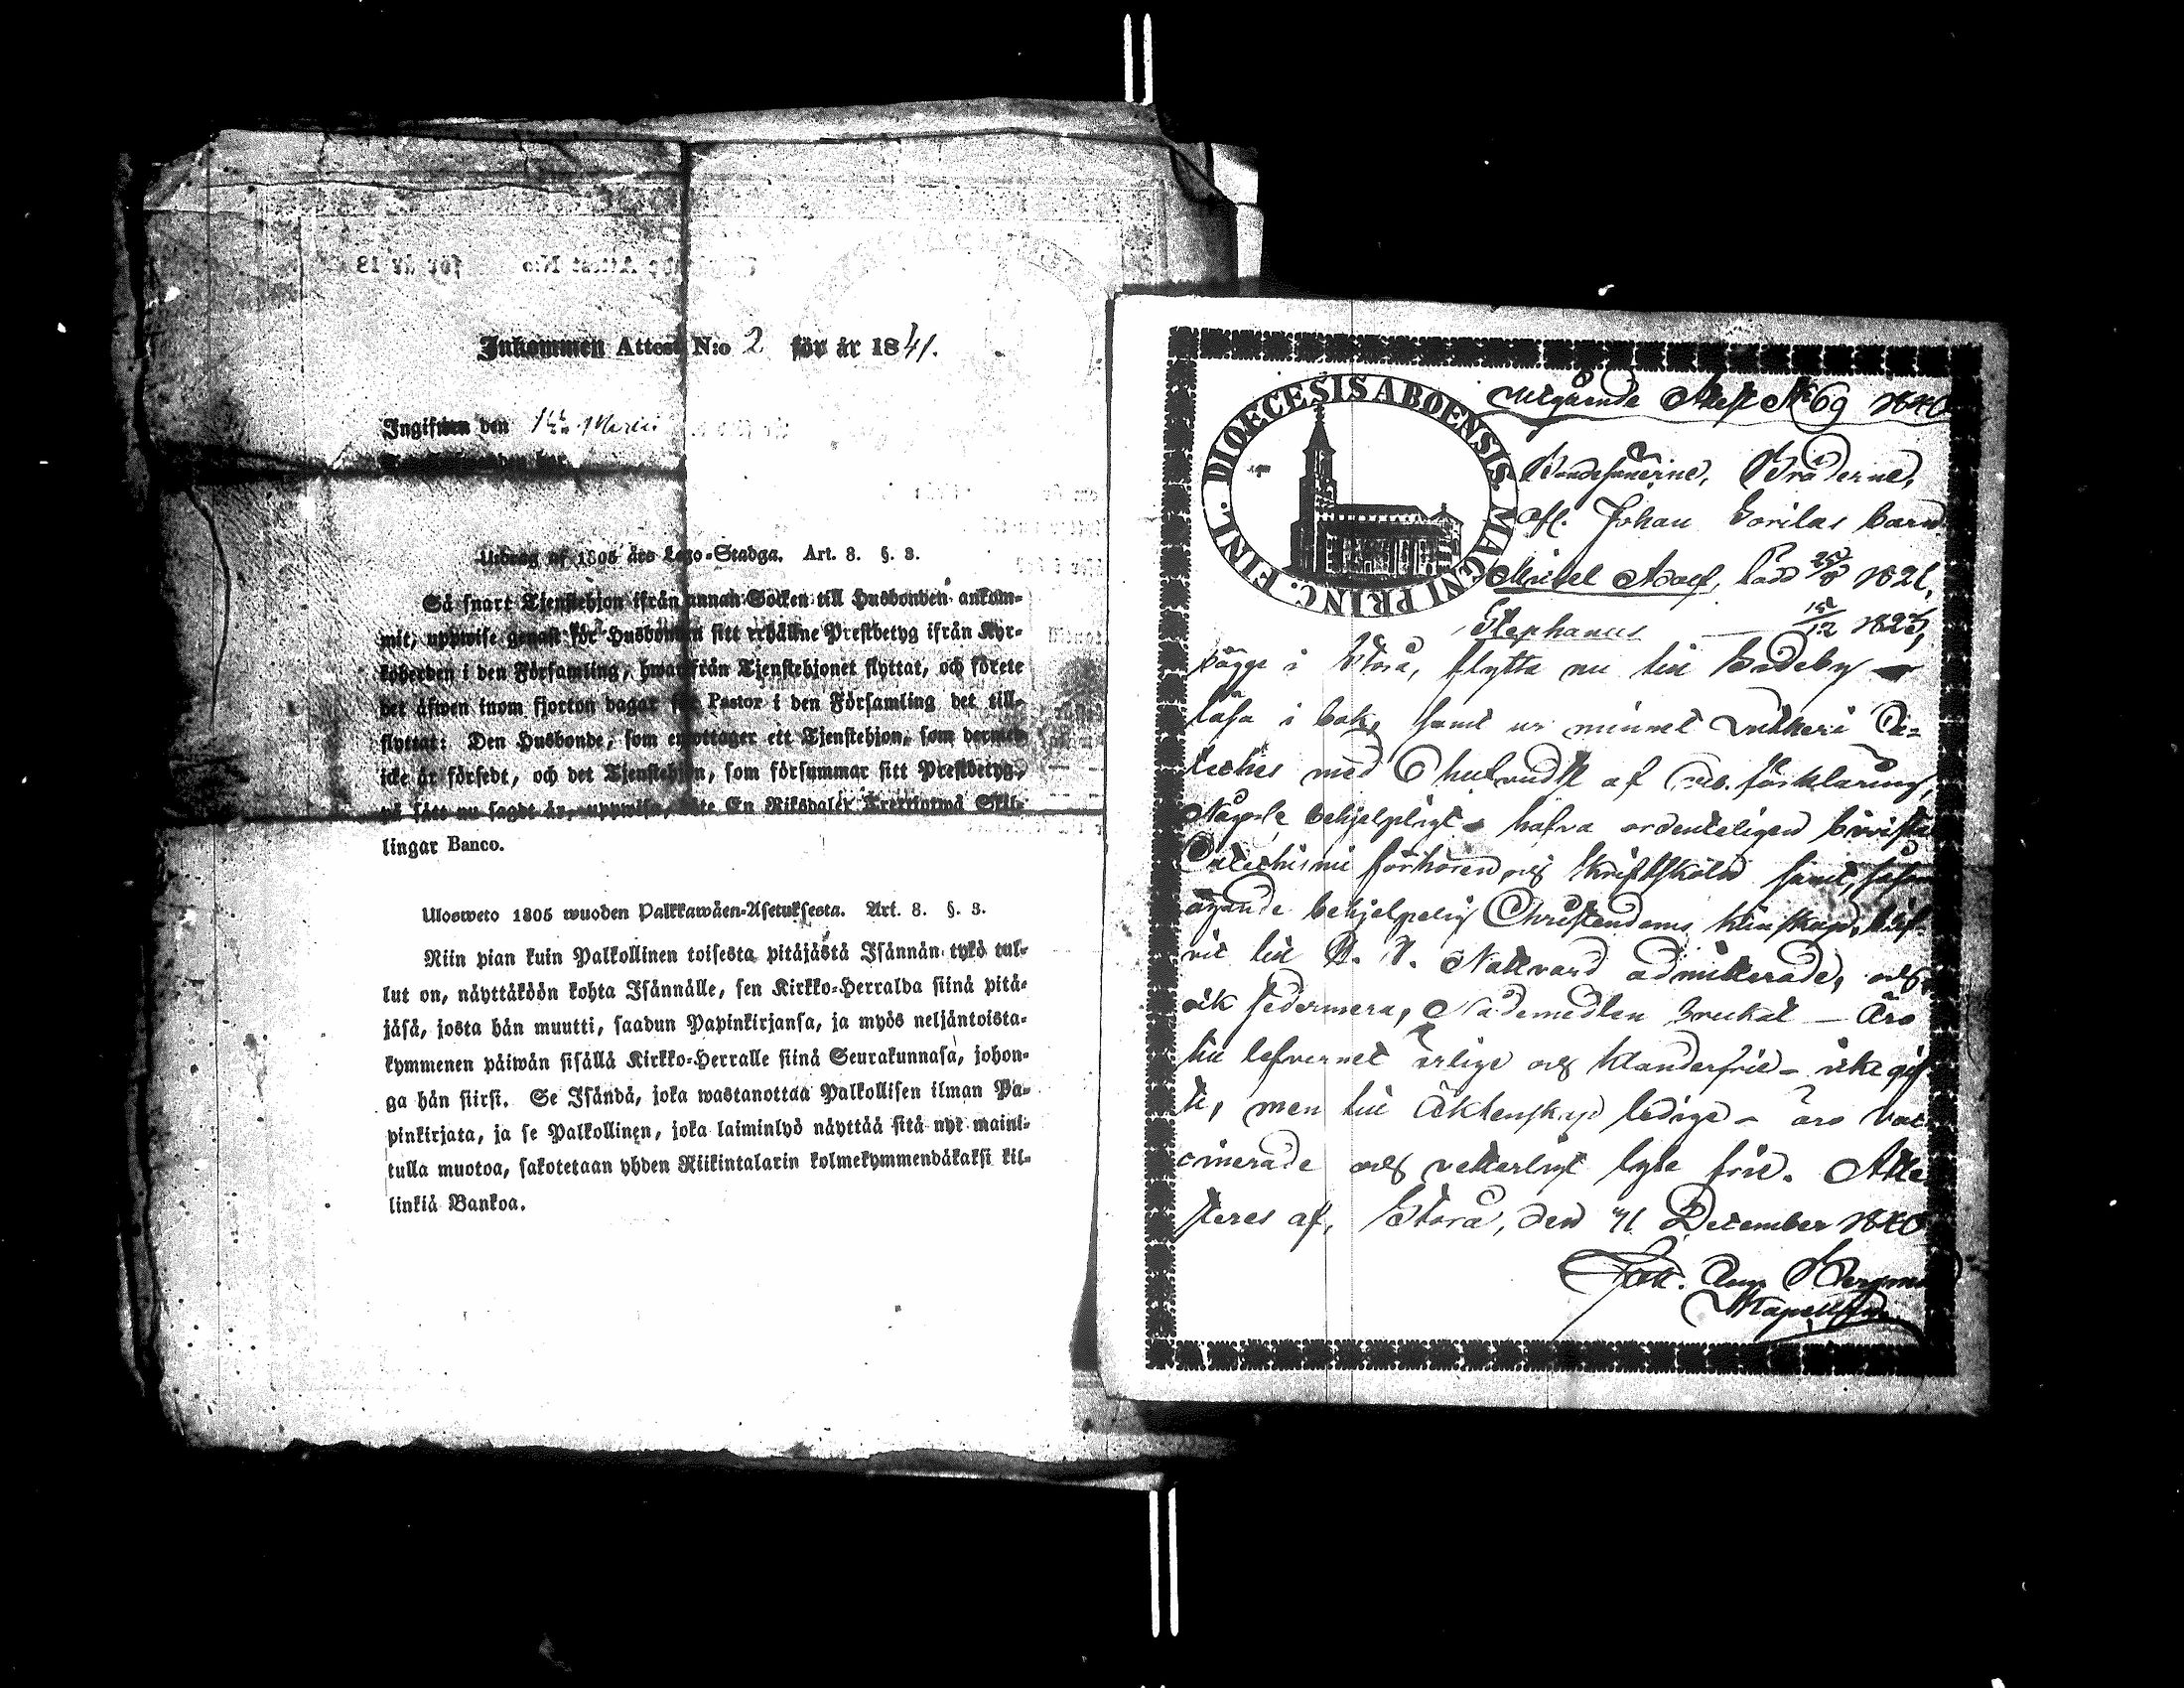 Inkommen Attest N:o 2 för år 1841.
Ingifwen den
Utdrag af 1805 års Lego-Stadga. Art. 8. §. 3.
Så snart Tjenstehjon ifrån annan Socken till Husbonden ankom-
mit, uppwise genast för Husbonden sitt erhållne Prestbetyg ifrån Kyr-
koherden i den Församling, hwarifrån Tjenstehjonet flyttat, och förete
det äfwen inom fjorton dagar för Pastor i den Församling det till-
flyttat: Den Husbonde, som emottager ett Tjenstehjon, som dermed
icke är försedt, och det Tjenstehjon, som försummar sitt Prestbetyg,
på sätt nu sagdt är, uppwisa, böte En Riksdaler Trettiotwå Skil-
lingar Banco.
Ulosweto 1805 wuoden Palkkawäen-Asetuksesta. Art. 8. §. 3.
Niin pian kuin Palkollinen toisesta pitäjästä Isännän tykö tul-
lut on, näyttäköön kohta Isännälle, sen Kirkko-Herralda siinä pitä-
jäsä, josta hän muutti, saadun Papinkirjansa, ja myös neljäntoista-
kymmenen päiwän sisällä Kirkko-Herralle siinä Seurakunnasa, johon-
ga hän siirsi. Se Isändä, joka wastanottaa Palkollisen ilman Pa-
pinkirjata, ja se Palkollinen, joka laiminlyö näyttää sitä nyt maini-
tulla muotoa, sakotetaan yhden Riikintalarin kolmekymmendäkaksi kil-
linkiä Bankoa.
DIOECESIS ABOENSIS. MAGNI PRINC. FINL.
Utgående Attest No 69 1840
Bondesönerne, Bröderne,
Johan barn
Michel Adolf, född 25/8 1821,
Stephanus — 15/12 1823,
bägge i Storå, flytta nu till
läsa i bok, samt ur minnet Lutheri Ca-
teches med hufvudst. af förklaring,
behjelpligt - hafva ordenteligen bivistat
Catechismi förhören, och Skriftskolan samt, såsom
ägande behjelpelig Christendoms kunskap, blif-
vit till H. H. Nattvard admitterade, och
ock sedermera, Nådemedlen brukat — Äro
till lefvernet ärlige och klanderfrie - icke gif-
te, men till Äktenskap ledige - äro vac-
cinerade och vetterligt lyte frie. Atte-
steres af, Storå, den 31 December 1840